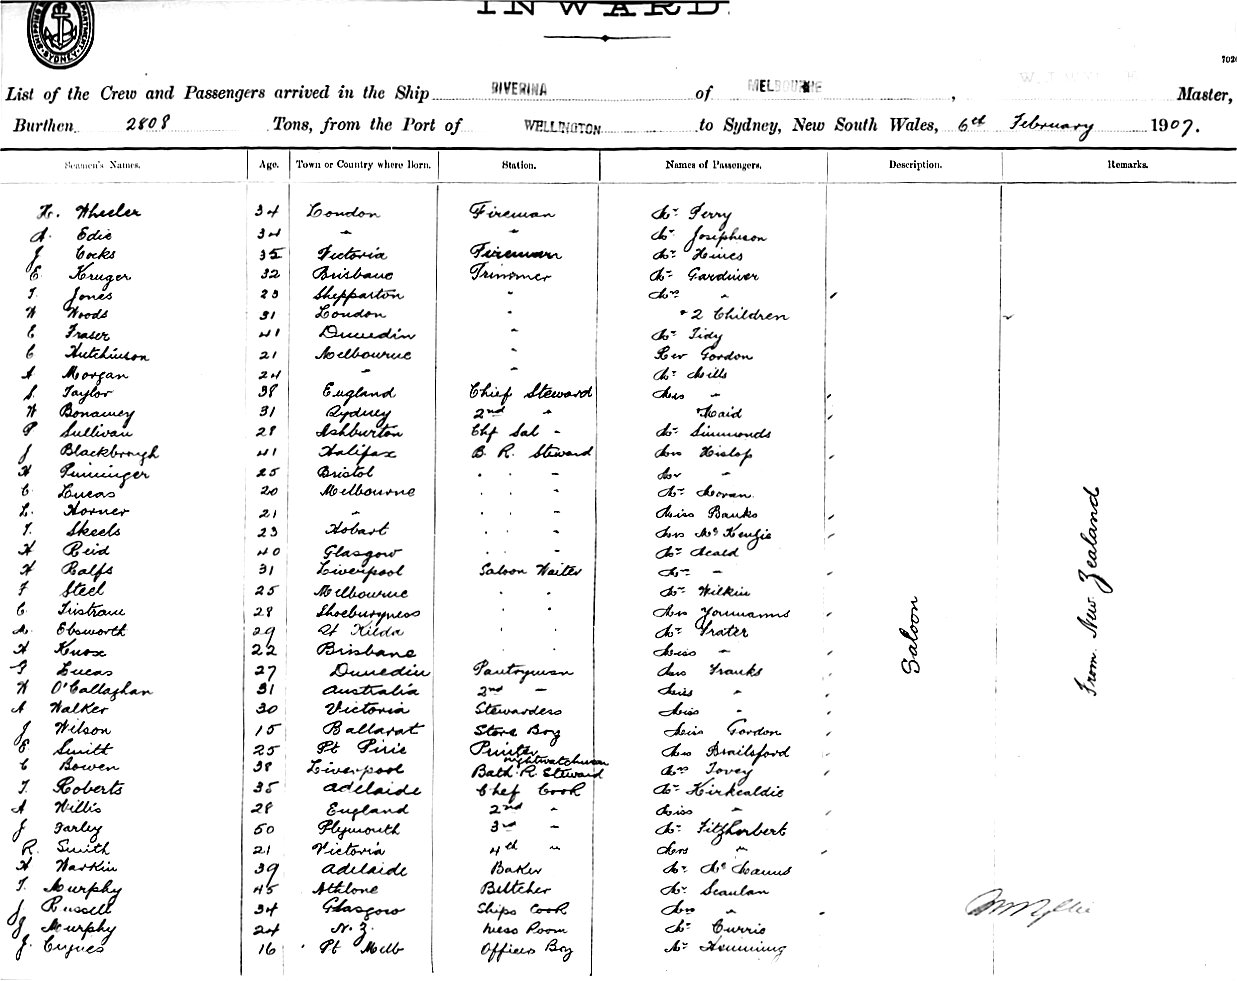 INWARD.
SYDNEY
List of the Crew and Passengers arrived in the Ship RIVERINA of MELBOURNE, Master,
Burthen 2808 Tons, from the Port of WELLINGTON to Sydney, New South Wales, 6th February 1907.
Seamen's Names. Age. Town or Country where Born. Station. Names of Passengers. Description. Remarks.
H. Wheeler 34 London Fireman Mr Perry
A. Edie 34 " " Mr Josephson
J Cocks 35 Victoria Fireman Mr Hines
E. Kruger 32 Brisbane Trimmer Mr Gardiner
T. Jones 23 Shepparton " Mrs "
W Woods 31 London " " 2 Children
E Fraser 41 Dunedin " Mr Tidy
C Hutchinson 21 Melbourne " Rev Gordon
A Morgan 24 " " Mr Mills
S. Taylor 38 England Chief Steward Mrs "
W Bonamey 31 Sydney 2nd " Maid
P Sullivan 28 Ashburton Chf Sal " Mr Simmonds
J Blackbrough 41 Halifax B. R. Steward Mrs Hislop
H 25 Bristol " " " "
C. Lucas 20 Melbourne " " " Mr Moran
L. Horner 21 " " " " Miss Banks
T. Skeels 23 Hobart " " " Mrs McKenzie
H Reid 40 Glasgow " " " Mr Meald
H Ralfs 31 Liverpool Saloon Waiter "
F Steel 25 Melbourne " " Mr Wilkin
C. Tristram 28 Shoeburyness " " Mrs Youmanns
A. Ebsworth 29 St Kilda " " Mr Frater
H Knox 22 Brisbane " " Miss "
F Lucas 27 Dunedin Pantryman Mrs Franks
W O'Callaghan 31 Australia 2nd " Miss "
A Walker 30 Victoria Stewardess Miss "
J Wilson 15 Ballarat Store Boy Miss Gordon
E. Smith 25 Pt Pirie Printer Mrs Brailsford
nightwatchman
C Bowen 38 Liverpool Bath R. Steward Mrs Tovey
T. Roberts 35 Adelaide Chef Cook Mr Kirkcaldie
A Willis 28 England 2nd " Miss "
J Farley 50 Plymouth 3rd " Mr Fitzherbert
R. Smith 21 Victoria 4th " Mrs "
H Warkin 39 Adelaide Baker Mr McManus
T. Murphy 45 Athlone Butcher Mr Scanlan
J Russell 34 Glasgow Ships Cook Mrs "
J Murphy 24 N.Z. Mess Room Mr Currie
J. 16 Pt Melb Officers Boy Mr Hemming
Saloon
From New Zealand